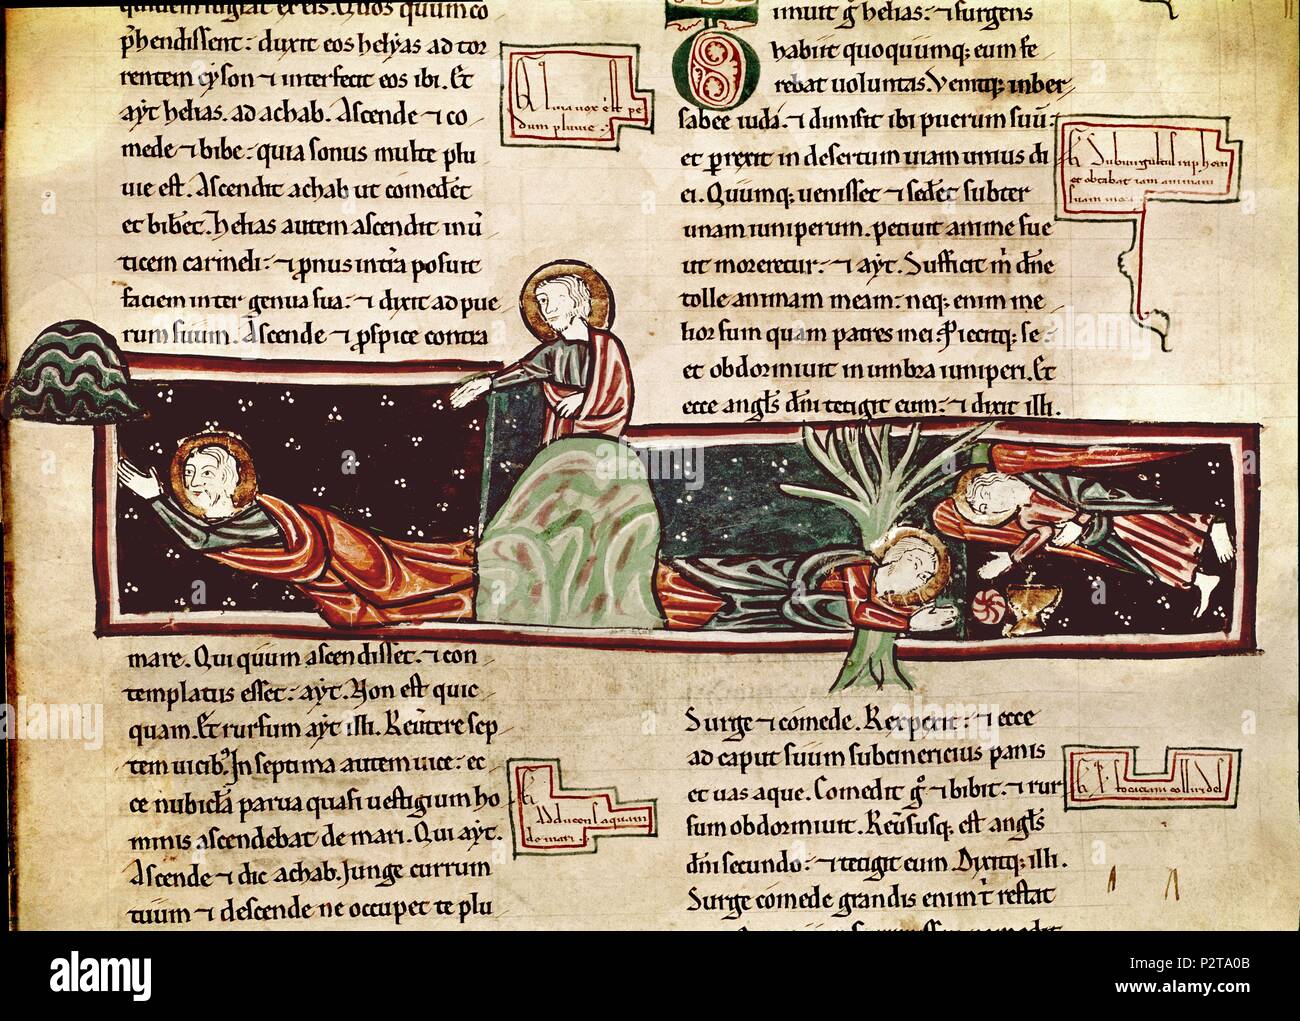 quidem fugiat ex eis. Quos quum co
p̄hendissent: duxit eos helyas ad tor
rentem cyson ⁊ interfecit eos ibi. Et
ayt helias. ad achab. Ascende ⁊ co
mede ⁊ bibe: quia sonus multe plu
uie est. Ascendit achab ut comedet̄
et biberet. helias autem ascendit in ū
ticem carmeli: ⁊ p̄nus in tr̄a posuit
faciem inter genua sua: ⁊ dixit ad pue
rum suum. Ascende ⁊ p̄spice contra
mare. Qui quum ascendisset. ⁊ con
templatus esset: ayt. Non est quic
quam. Et rursum ayt illi. Reuertere sep
tem uicib;. In septima autem uice: ec
ce nubicula parua quasi uestigium ho
minis ascendebat de mari. Qui ayt.
Ascende ⁊ dic achab. Junge currum
tuum ⁊ descende ne occupet te plu
Al ma uox est pe
dum pluuie
Adducens aquam
de mari
imuit g̊ helias: ⁊ surgens
habiit quoquumq; eum fe
rebat uoluntas. Venitq; in ber
sabee iuda: ⁊ dimisit ibi puerum suū:
et p̄rexit in desertum uiam unius di
ei. Quumq; uenisset ⁊ sederet subter
unam iuniperum. petiuit anime sue
ut moreretur: ⁊ ayt. Sufficit m̄ dn̄e
tolle animam meam: neq; enim me
lior sum quam patres mei. Piecitq; se:
et obdormiuit in umbra iuniperi. Et
ecce angl̄s dn̄i tetigit eum: ⁊ dixit illi.
Surge ⁊ comede. Respexit: ⁊ ecce
ad caput suum subcinericius panis
et uas aque. Comedit g̊ ⁊ bibit: ⁊ rur
sum obdormiuit. Reuersusq; est angl̄s
dn̄i secundo: ⁊ tetigit eum. Dixitq; illi.
Surge comede grandis enim t̄ restat
et obtabat iam animam
suam
alamy
Image ID: P2TA0B
www.alamy.com